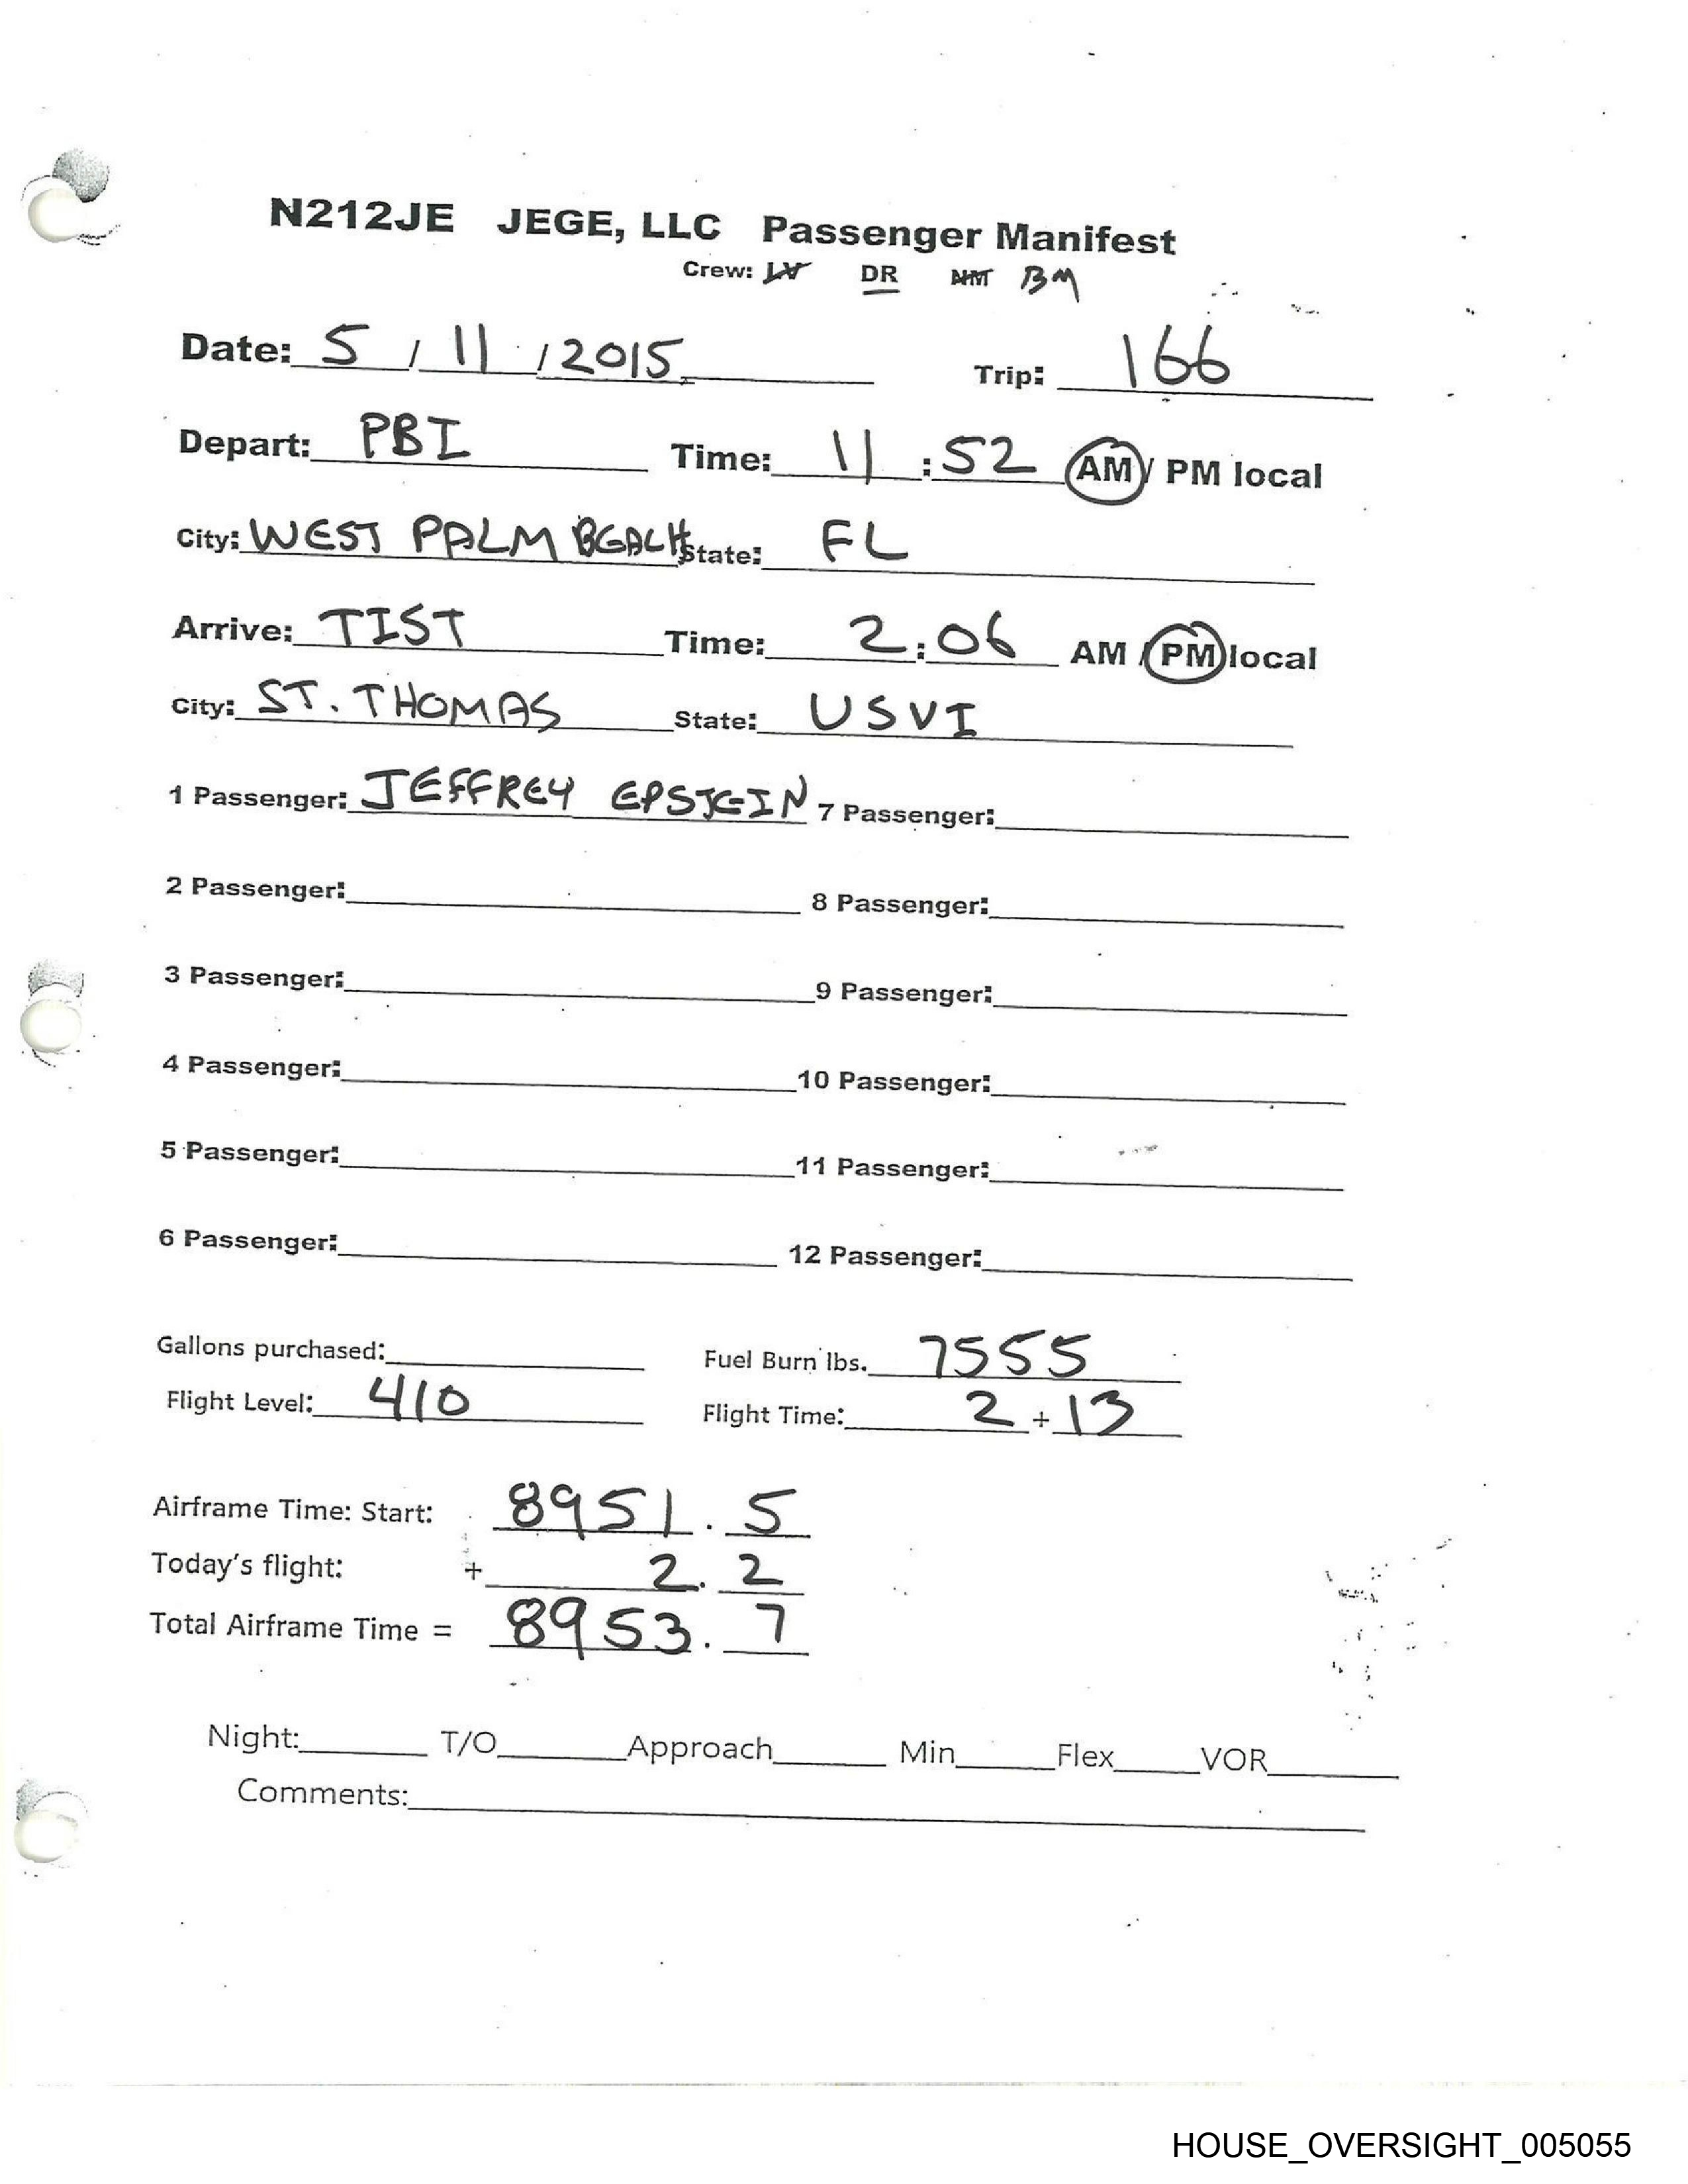 N212JE JEGE, LLC Passenger Manifest
Crew: LV DR NM BM
Date: 5 / 11 / 2015 Trip: 166
Depart: PBI Time: 11 : 52 AM / PM local
City: WEST PALM BEACH State: FL
Arrive: TIST Time: 2 : 06 AM / PM local
City: ST. THOMAS State: USVI
1 Passenger: JEFFREY EPSTEIN 7 Passenger:
2 Passenger: 8 Passenger:
3 Passenger: 9 Passenger:
4 Passenger: 10 Passenger:
5 Passenger: 11 Passenger:
6 Passenger: 12 Passenger:
Gallons purchased: Fuel Burn lbs. 7555
Flight Level: 410 Flight Time: 2 + 13
Airframe Time: Start: 8951 . 5
Today's flight: + 2 . 2
Total Airframe Time = 8953 . 7
Night: T/O Approach Min Flex VOR
Comments:
HOUSE_OVERSIGHT_005055